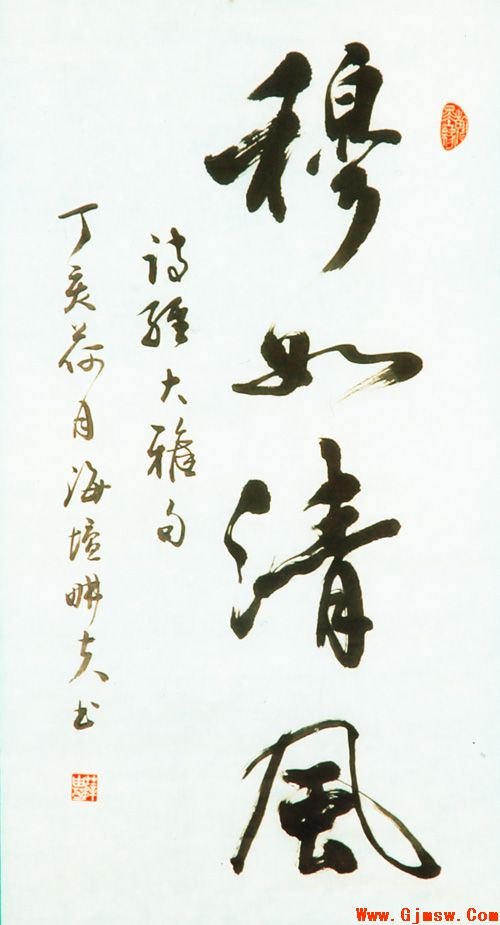 穆如清風
詩經大雅句
丁亥荷月海壇耕夫书
Www.Gjmsw.Com